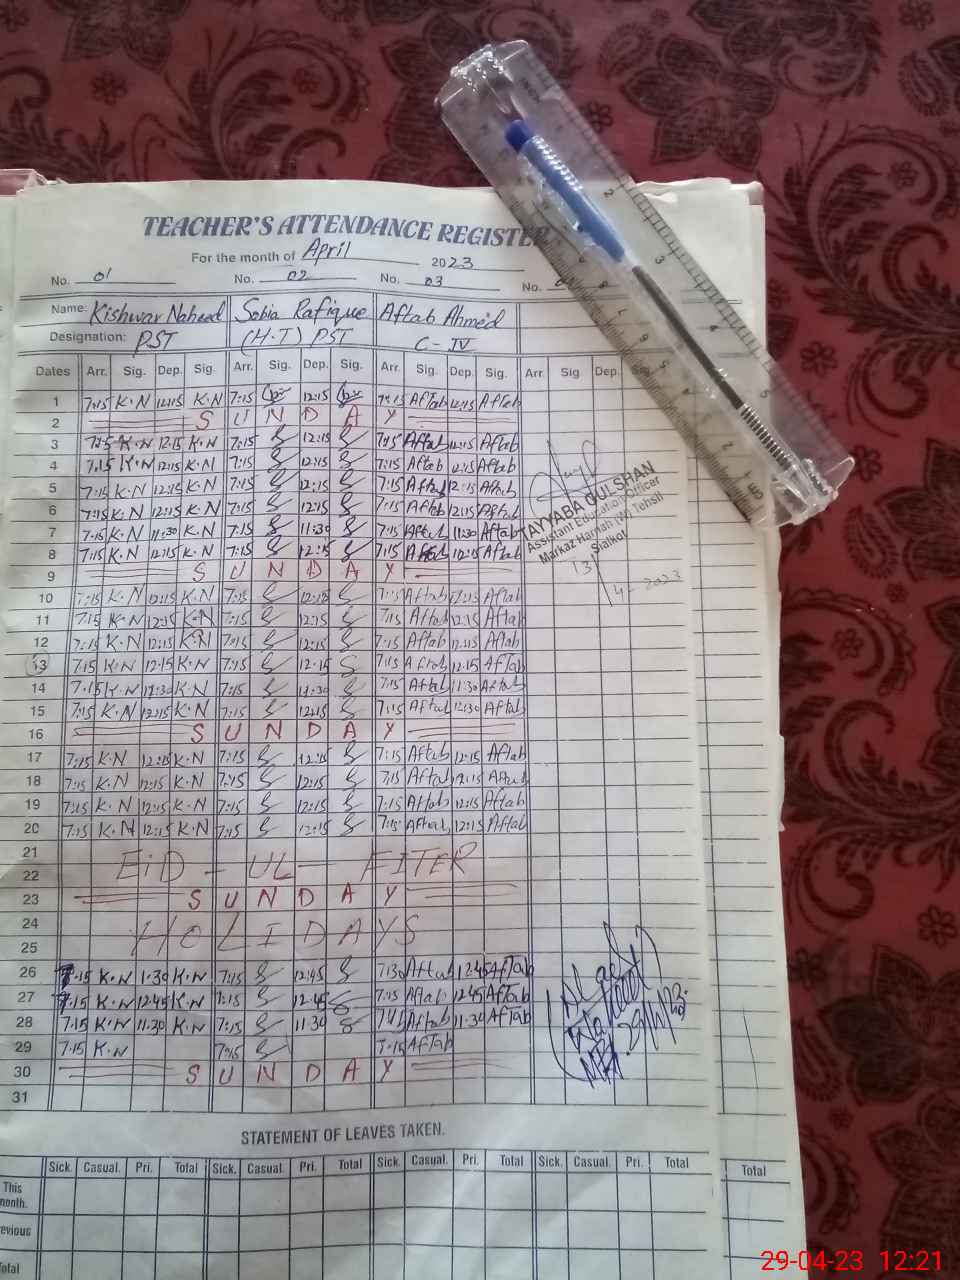 TEACHER'S ATTENDANCE REGISTER
For the month of April 2023
No. 01 No. 02 No. 03 No.
Name: Kishwar Naheed Sobia Rafique Aftab Ahmed
Designation: PST (H.T) PST C-IV
Dates Arr. Sig. Dep. Sig. Arr. Sig. Dep. Sig. Arr. Sig. Dep. Sig. Arr. Sig Dep. Sig.
1 7:15 K.N 12:15 K.N 7:15 12:15 7:15 Aftab 12:15 Aftab
2 S U N D A Y
3 7:15 K.N 12:15 K.N 7:15 12:15 7:15 Aftab 12:15 Aftab
4 7:15 K.N 12:15 K.N 7:15 12:15 7:15 Aftab 12:15 Aftab
5 7:15 K.N 12:15 K.N 7:15 12:15 7:15 Aftab 12:15 Aftab
6 7:15 K.N 12:15 K.N 7:15 12:15 7:15 Aftab 12:15 Aftab
7 7:15 K.N 11:30 K.N 7:15 11:30 7:15 Aftab 11:30 Aftab
8 7:15 K.N 12:15 K.N 7:15 12:15 7:15 Aftab 12:15 Aftab
9 S U N D A Y
10 7:15 K.N 12:15 K.N 7:15 12:15 7:15 Aftab 12:15 Aftab
11 7:15 K.N 12:15 K.N 7:15 12:15 7:15 Aftab 12:15 Aftab
12 7:15 K.N 12:15 K.N 7:15 12:15 7:15 Aftab 12:15 Aftab
13 7:15 K.N 12:15 K.N 7:15 12:15 7:15 Aftab 12:15 Aftab
14 7:15 K.N 11:30 K.N 7:15 11:30 7:15 Aftab 11:30 Aftab
15 7:15 K.N 12:15 K.N 7:15 12:15 7:15 Aftab 12:30 Aftab
16 S U N D A Y
17 7:15 K.N 12:15 K.N 7:15 12:15 7:15 Aftab 12:15 Aftab
18 7:15 K.N 12:15 K.N 7:15 12:15 7:15 Aftab 12:15 Aftab
19 7:15 K.N 12:15 K.N 7:15 12:15 7:15 Aftab 12:15 Aftab
20 7:15 K.N 12:15 K.N 7:15 12:15 7:15 Aftab 12:15 Aftab
21
22 EID - UL - FITER
23 S U N D A Y
24 HOLIDAYS
25
26 7.15 K.N 1.30 K.N 7:15 12:45 7:30 Aftab 12:45 Aftab
27 7.15 K.N 12.45 K.N 7:15 12.45 7:15 Aftab 12:45 Aftab
28 7.15 K.N 11.30 K.N 7:15 11:30 Aftab 11:30 Aftab
29 7.15 K.N 7:15 7:15 Aftab
30 S U N D A Y
31
TAYYABA GULSHAN
Assistant Education Officer
Markaz Harrah (W) Tehsil
Sialkot
13/4-2023
STATEMENT OF LEAVES TAKEN.
Sick. Casual. Pri. Total Sick. Casual. Pri. Total Sick. Casual. Pri. Total Sick. Casual. Pri. Total Total
This
month.
evious
otal
29-04-23 12:21